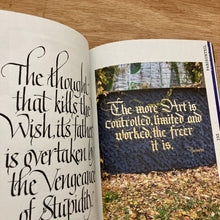 The thought
that kills the
Wish, it's father
is overtaken by
the Vengeance
of Stupidity.
The more Art is
controlled, limited and
worked, the freer
it is.